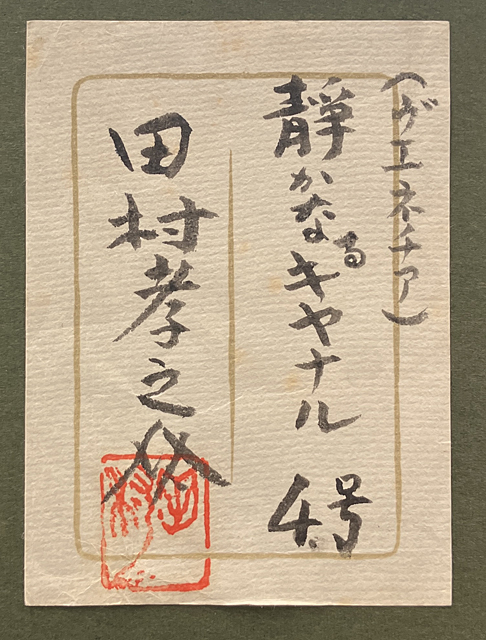 （ヴエネチア）
静かなるキャナル 4号
田村孝之介